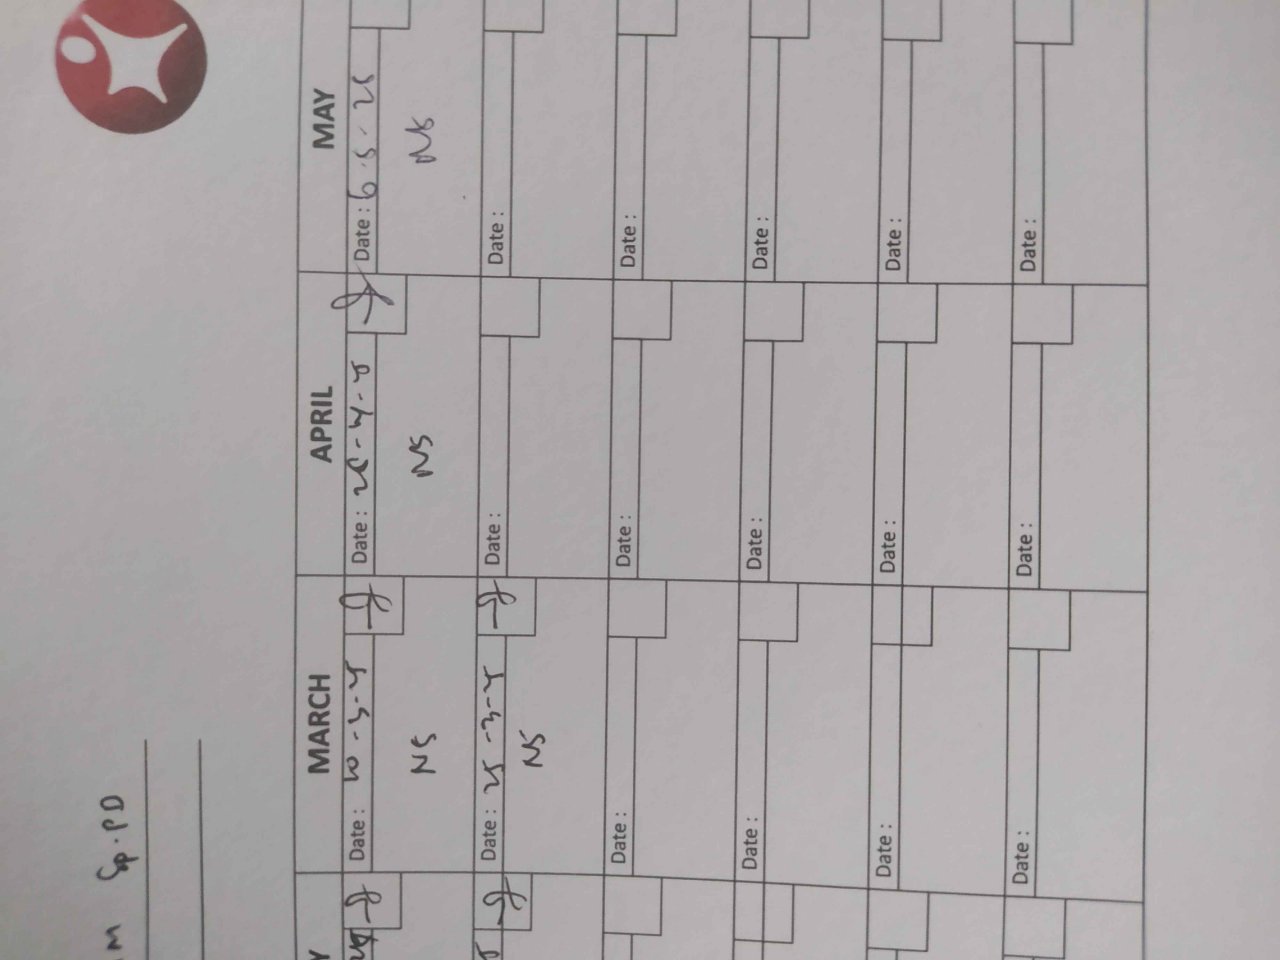 Sp.PD
MARCH APRIL MAY
Date : Date : Date : 6.5.25
NS NS NS
Date : 25-3- Date : Date :
NS
Date : Date : Date :
Date : Date : Date :
Date : Date : Date :
Date : Date : Date :